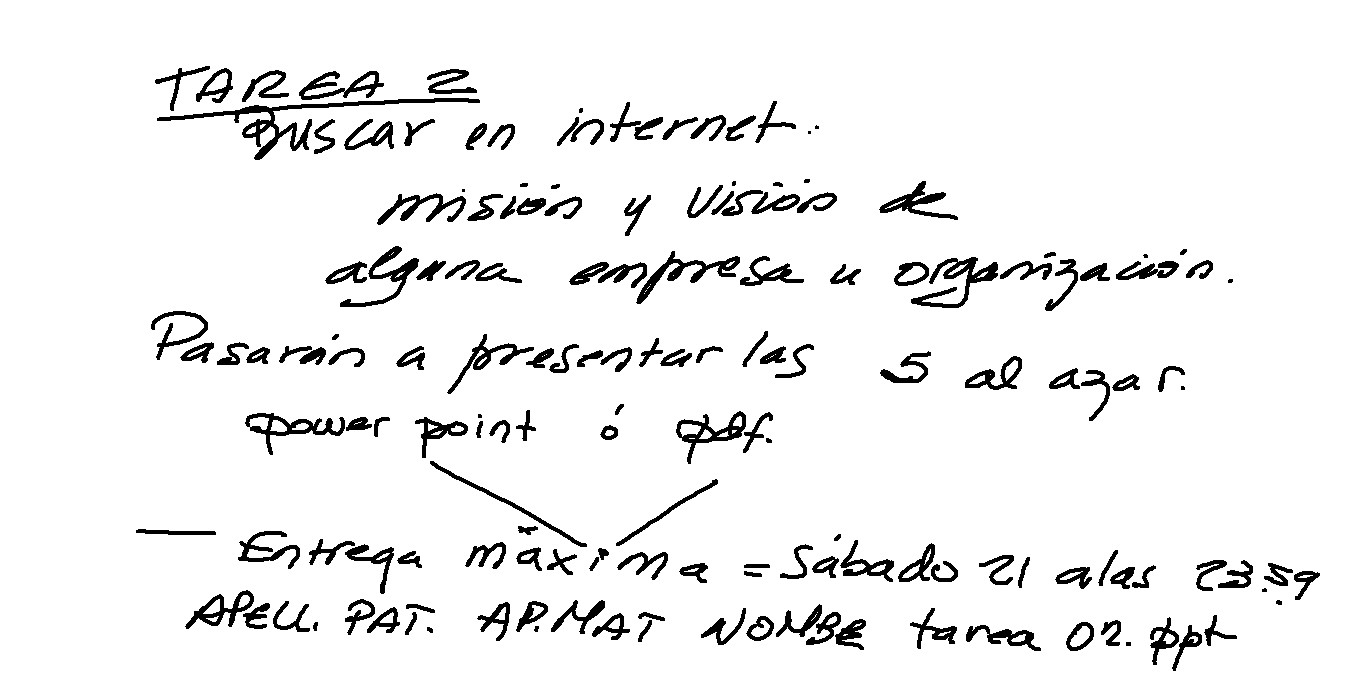 TAREA 2
Buscar en internet.
misión y visión de
alguna empresa u organización.
Pasarán a presentar las 5 al azar.
power point ó pdf.
Entrega máxima = Sábado 21 a las 23:59
APELL. PAT. AP.MAT NOMBE tarea 02. ppt